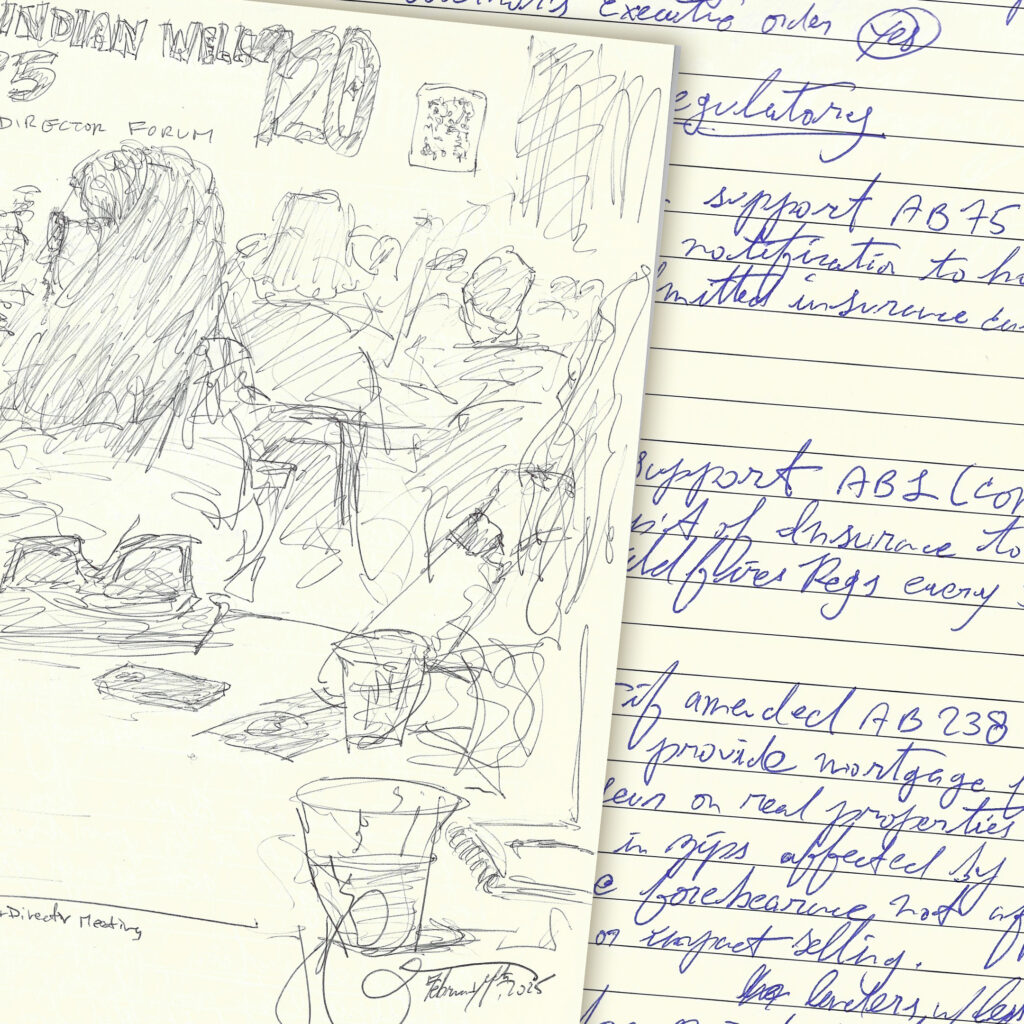 INDIAN WELLS
120
25
DIRECTOR FORUM
Director Meeting
February 2025
executive order yes
egulatores
support AB 75
notification to h
mitted insurance
support AB 1 (con
of Insurance to
Regs every
if amended AB 238
provide mortgage f
on real properties
in zips affected by
forebearance not
or impact selling.
lenders, w/